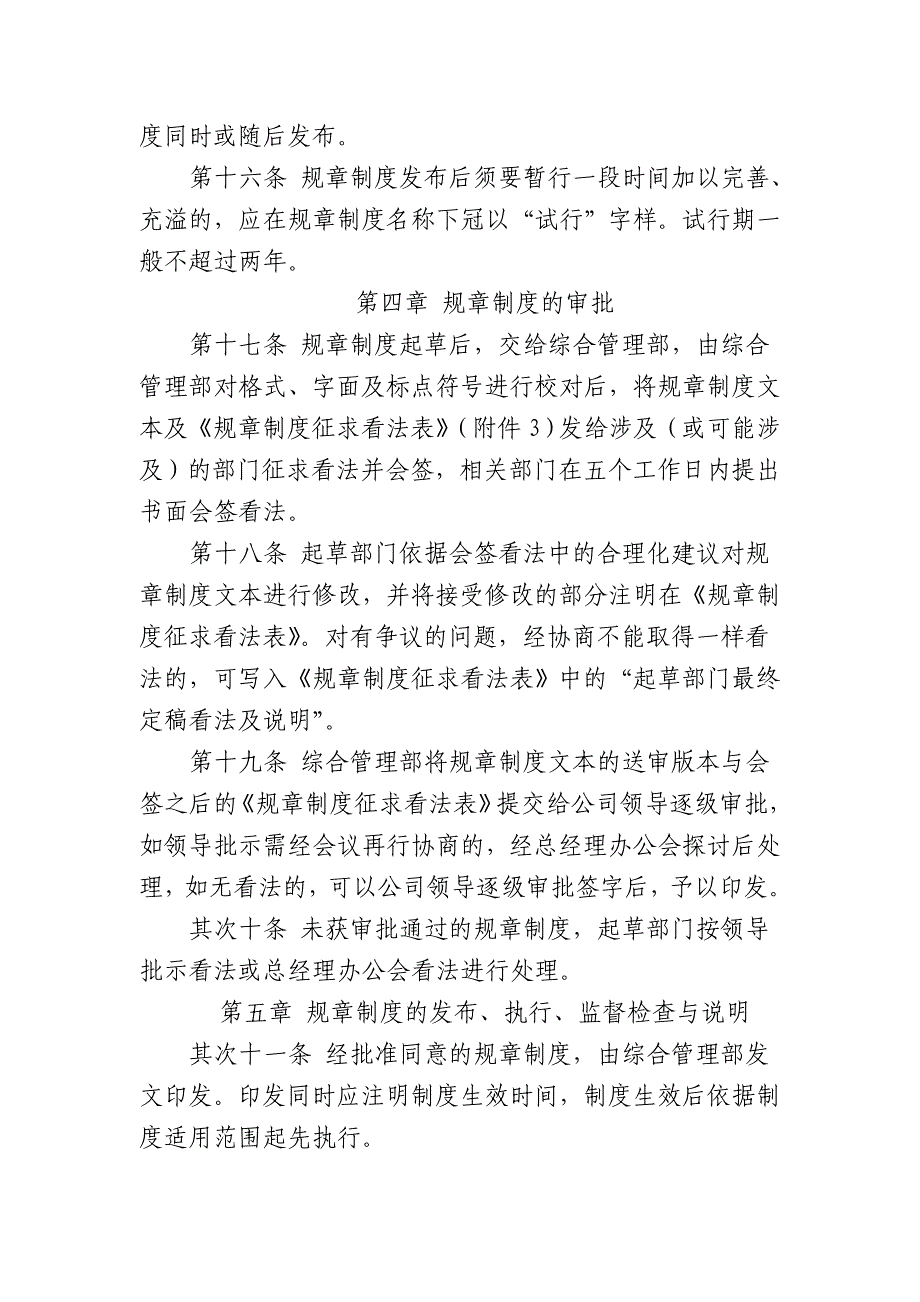 度同时或随后发布。
第十六条 规章制度发布后须要暂行一段时间加以完善、
充溢的，应在规章制度名称下冠以“试行”字样。试行期一
般不超过两年。
第四章 规章制度的审批
第十七条 规章制度起草后，交给综合管理部，由综合
管理部对格式、字面及标点符号进行校对后，将规章制度文
本及《规章制度征求看法表》（附件 3）发给涉及（或可能涉
及）的部门征求看法并会签，相关部门在五个工作日内提出
书面会签看法。
第十八条 起草部门依据会签看法中的合理化建议对规
章制度文本进行修改，并将接受修改的部分注明在《规章制
度征求看法表》。对有争议的问题，经协商不能取得一样看
法的，可写入《规章制度征求看法表》中的“起草部门最终
定稿看法及说明”。
第十九条 综合管理部将规章制度文本的送审版本与会
签之后的《规章制度征求看法表》提交给公司领导逐级审批，
如领导批示需经会议再行协商的，经总经理办公会探讨后处
理，如无看法的，可以公司领导逐级审批签字后，予以印发。
其次十条 未获审批通过的规章制度，起草部门按领导
批示看法或总经理办公会看法进行处理。
第五章 规章制度的发布、执行、监督检查与说明
其次十一条 经批准同意的规章制度，由综合管理部发
文印发。印发同时应注明制度生效时间，制度生效后依据制
度适用范围起先执行。